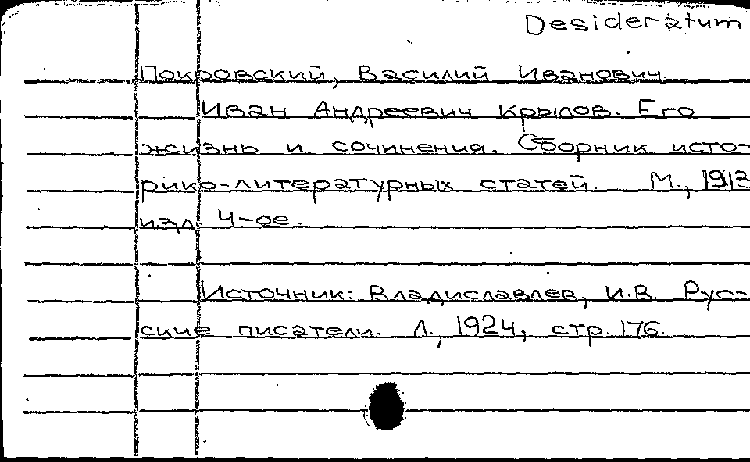 Desideratum
Покровский, Василий Иванович.
Иван Андреевич Крылов. Его
жизнь и сочинения. Сборник исто-
рико-литературных статей. М., 1913
изд. 4-ое.
Источник: Владиславлев, И.В. Рус-
ские писатели. Л., 1924, стр. 176.